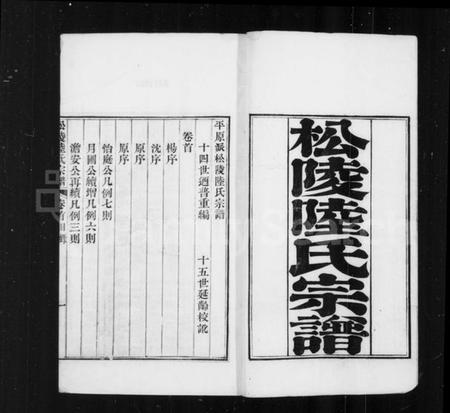 松陵陸氏宗譜
平原派松陵陸氏宗譜
十四世迺普重編 十五世延齡校訛
卷首
楊序
沈序
原序
原序
怡庭公凡例七則
月國公續增凡例六則
澹安公再續凡例三則
松陵陸氏宗譜 卷首目錄